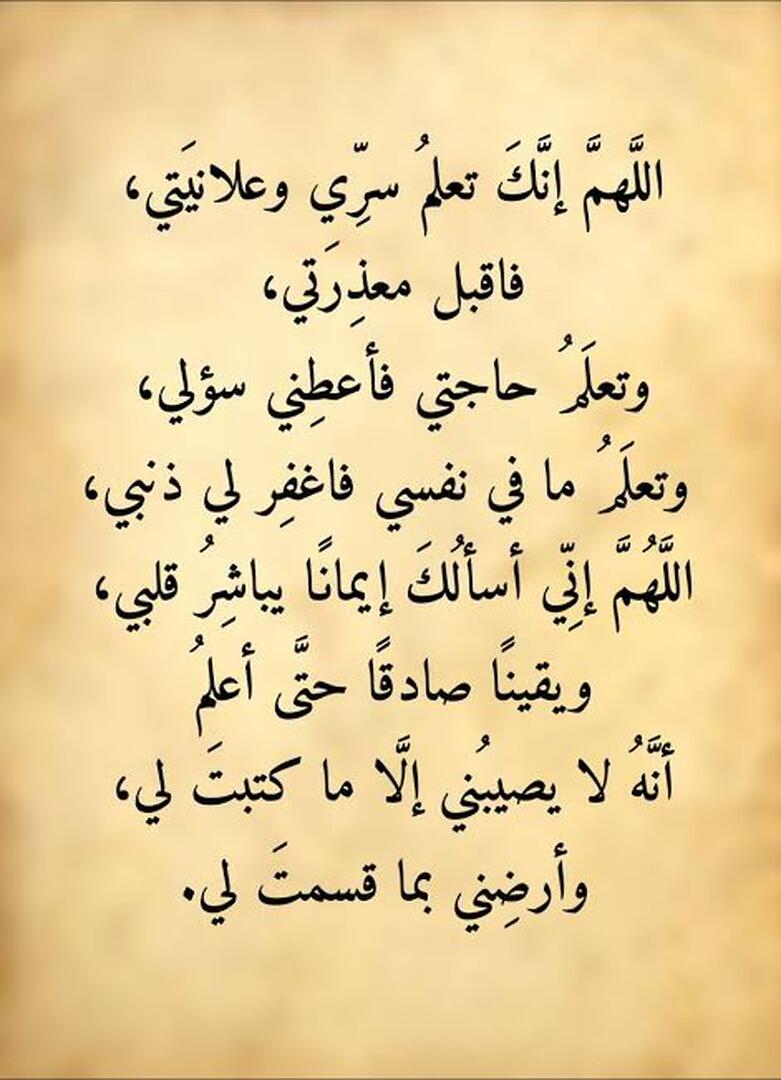 اللَّهمَّ إنَّكَ تعلمُ سرِّي وعلانيَتي،
فاقبل معذِرَتي،
وتعلَمُ حاجتي فأعطِني سؤلي،
وتعلَمُ ما في نفسي فاغفِر لي ذنبي،
اللَّهُمَّ إنِّي أسألُكَ إيمانًا يباشِرُ قلبي،
ويقينًا صادقًا حتَّى أعلمُ
أنَّهُ لا يصيبُني إلَّا ما كتبتَ لي،
وأرضِني بما قسمتَ لي.